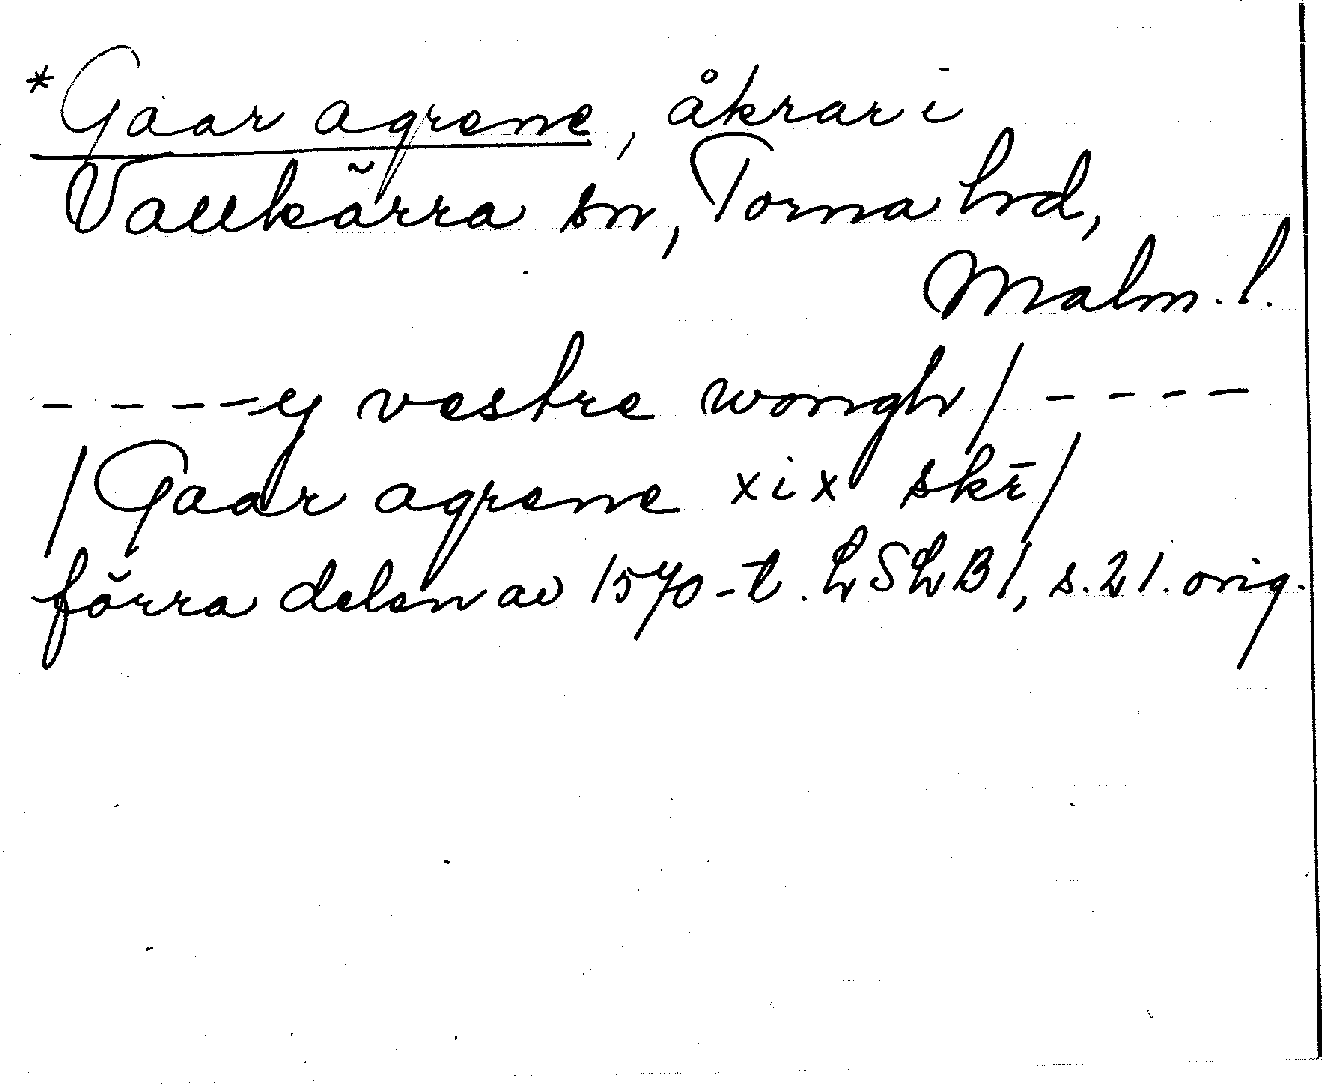 *Gaar agrene, åkrar i
Vallkärra sn, Torna hd,
Malm. l.
----y vestre wongh/----
/Gaar agrene xix skr̄/
förra delen av 1570-t. LSLB1, s.21. orig.